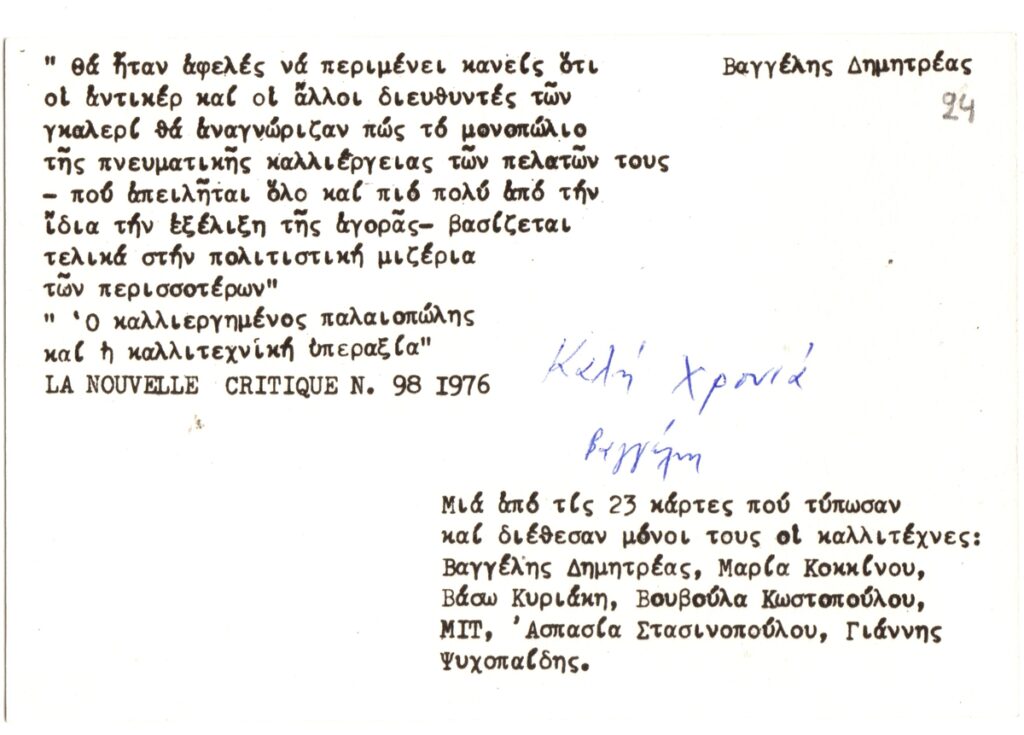 " Θά ἦταν ἀφελές νά περιμένει κανείς ὅτι
οἱ ἀντικέρ καί οἱ ἄλλοι διευθυντές τῶν
γκαλερί θά ἀναγνώριζαν πώς τό μονοπώλιο
τῆς πνευματικῆς καλλιέργειας τῶν πελατῶν τους
- πού ἀπειλῆται ὅλο καί πιό πολύ ἀπό τήν
ἴδια τήν ἐξέλιξη τῆς ἀγορᾶς- βασίζεται
τελικά στήν πολιτιστική μιζέρια
τῶν περισσοτέρων"
" Ὁ καλλιεργημένος παλαιοπώλης
καί ἡ καλλιτεχνική ὑπεραξία"
LA NOUVELLE CRITIQUE N. 98 1976
Βαγγέλης Δημητρέας
24
Καλή χρονιά
Βαγγέλης
Μιά ἀπό τίς 23 κάρτες πού τύπωσαν
καί διέθεσαν μόνοι τους οἱ καλλιτέχνες:
Βαγγέλης Δημητρέας, Μαρία Κοκκίνου,
Βάσω Κυριάκη, Βουβούλα Κωστοπούλου,
ΜΙΤ, Ἀσπασία Στασινοπούλου, Γιάννης
Ψυχοπαίδης.